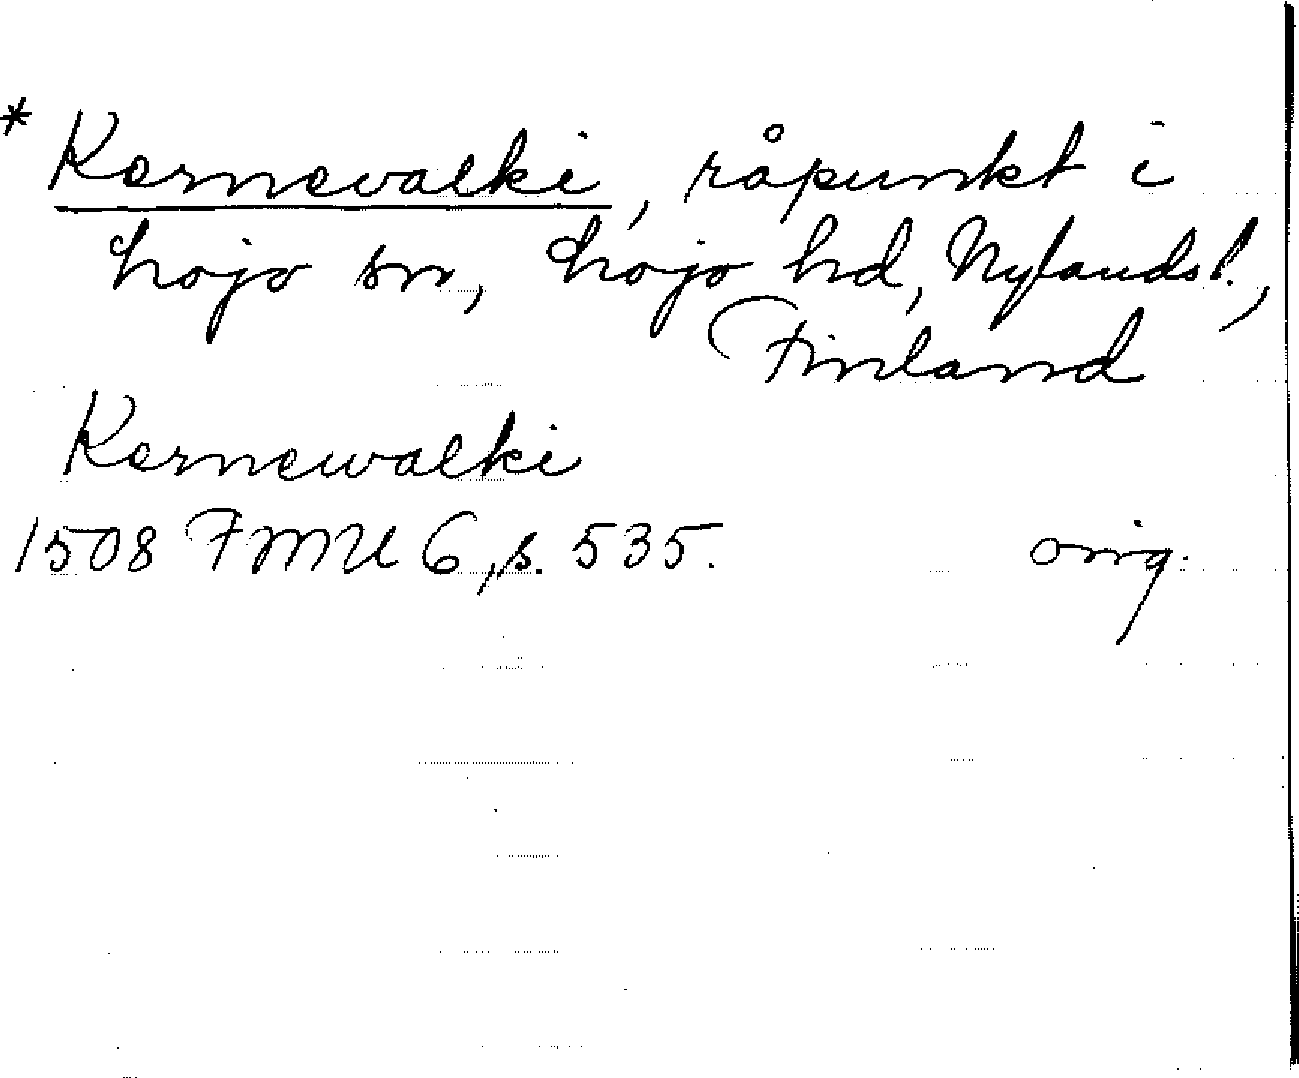 * Kernevalki, råpunkt i
Lojo sn, Lojo hd, Nylands l.,
Finland
Kernewalki
1508 FMU 6, s. 535. orig.